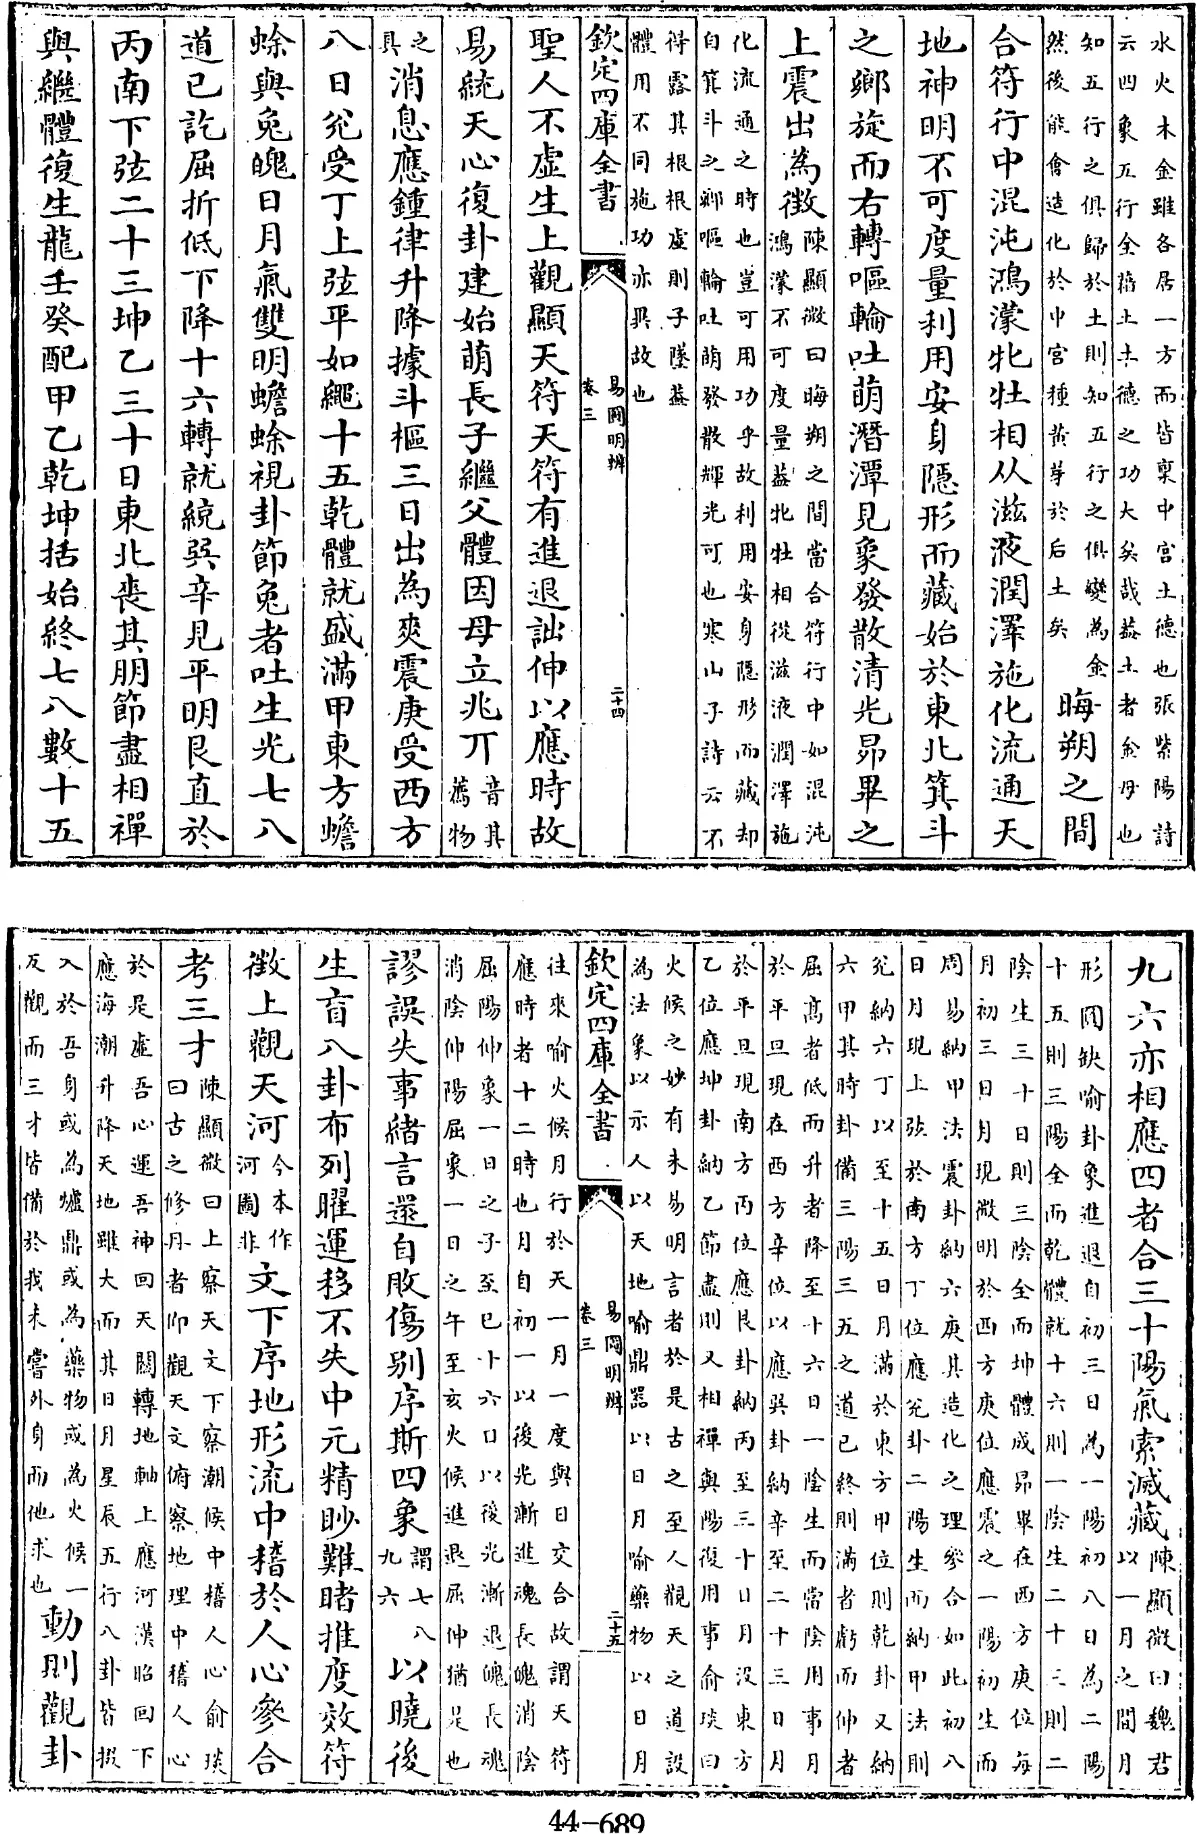 水火木金雖各居一方而皆稟中宫土德也張紫陽詩
云四象五行全藉土土德之功大矣哉葢土者金母也
知五行之俱歸於土則知五行之俱變為金
然後能會造化於中宫種黄芽於后土矣
晦朔之間
合符行中混沌鴻濛牝牡相从滋液潤澤施化流通天
地神明不可度量利用安身隱形而藏始於東北箕斗
之鄉旋而右轉嘔輪吐萌潛潭見象發散清光昴畢之
上震出為徴
陳顯微曰晦朔之間當合符行中如混沌
鴻濛不可度量葢牝牡相從滋液潤澤施
化流通之時也豈可用功乎故利用安身隱形而藏却
自箕斗之鄉嘔輪吐萌發散輝光可也寒山子詩云不
得露其根根虚則子墜葢
體用不同施功亦異故也
欽定四庫全書
易圖明辨
卷三
二十四
聖人不虚生上觀顯天符天符有進退詘伸以應時故
易統天心復卦建始萌長子繼父體因母立兆丌
音其
薦物
之
具
消息應鍾律升降據斗樞三日出為爽震庚受西方
八日兊受丁上弦平如繩十五乾體就盛滿甲東方蟾
蜍與兔魄日月氣雙明蟾蜍視卦節兔者吐生光七八
道已訖屈折低下降十六轉就統巽辛見平明艮直於
丙南下弦二十三坤乙三十日東北喪其朋節盡相禪
與繼體復生龍壬癸配甲乙乾坤括始終七八數十五
九六亦相應四者合三十陽氣索滅藏
陳顯微曰魏君
以一月之間月
形圓缺喻卦象進退自初三日為一陽初八日為二陽
十五則三陽全而乾體就十六則一陰生二十三則二
陰生三十日則三陰全而坤體成昴畢在西方庚位每
月初三日月現微明於西方庚位應震之一陽初生而
周易納甲法震卦納六庚其造化之理參合如此初八
日月現上弦於南方丁位應兊卦二陽生而納甲法則
兊納六丁以至十五日月滿於東方甲位則乾卦又納
六甲其時卦備三陽三五之道已終則滿者虧而伸者
屈高者低而升者降至十六日一陰生而當陰用事月
於平旦現在西方辛位以應巽卦納辛至二十三日月
於平旦現南方丙位應艮卦納丙至三十日月没東方
乙位應坤卦納乙節盡則又相禪與陽復用事俞琰曰
火候之妙有未易明言者於是古之至人觀天之道設
為法象以示人以天地喻鼎器以日月喻藥物以日月
欽定四庫全書
易圖明辨
卷三
二十五
往來喻火候月行於天一月一度與日交合故謂天符
應時者十二時也月自初一以後光漸進魂長魄消陰
屈陽伸象一日之子至巳十六日以後光漸退魄長魂
消陰伸陽屈象一日之午至亥火候進退屈伸猶是也
謬誤失事緒言還自敗傷别序斯四象
謂七八
九六
以曉後
生盲八卦布列曜運移不失中元精眇難睹推度效符
徴上觀天河
今本作
河圖非
文下序地形流中稽於人心參合
考三才
陳顯微曰上察天文下察潮候中稽人心俞琰
曰古之修丹者仰觀天文俯察地理中稽人心
於是虚吾心運吾神回天關轉地軸上應河漢昭回下
應海潮升降天地雖大而其日月星辰五行八卦皆掇
入於吾身或為爐鼎或為藥物或為火候一
反觀而三才皆備於我未嘗外身而他求也
動則觀卦
44-689